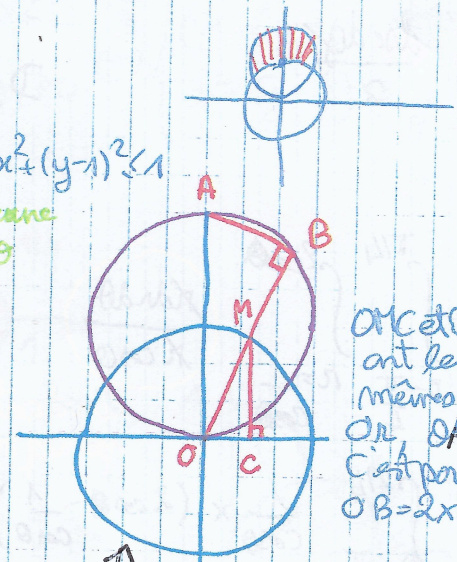 x²+(y-1)²≤1
A
B
M
O
C
OMC et
ont le
mêmes
Or,
C'est
OB=2x